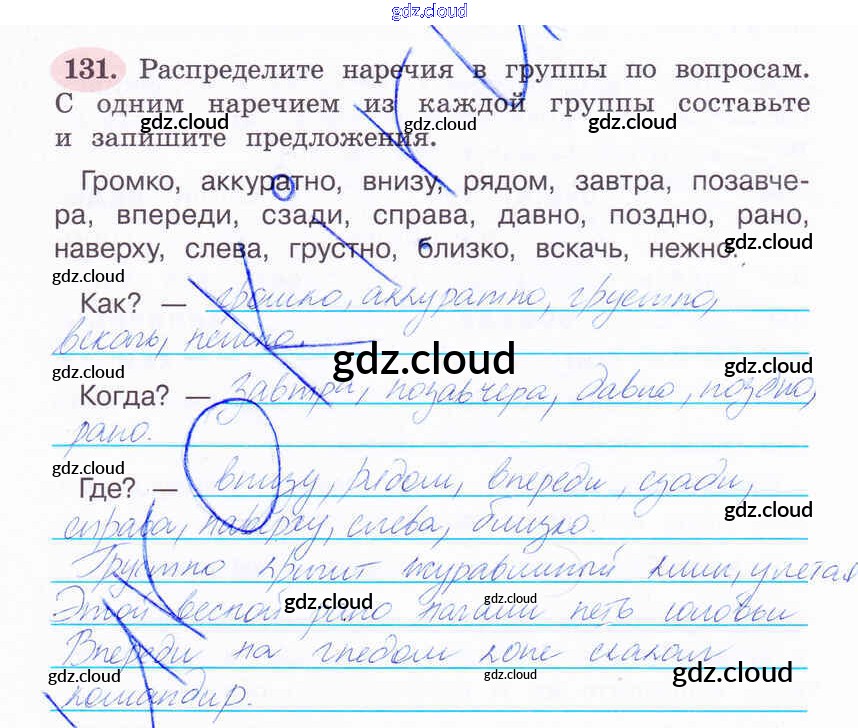 gdz.cloud
131. Распределите наречия в группы по вопросам.
С одним наречием из каждой группы составьте
и запишите предложения.
gdz.cloud gdz.cloud gdz.cloud
Громко, аккуратно, внизу, рядом, завтра, позавче-
ра, впереди, сзади, справа, давно, поздно, рано,
наверху, слева, грустно, близко, вскачь, нежно.
gdz.cloud
gdz.cloud
Как? — громко, аккуратно, грустно,
вскачь, нежно.
gdz.cloud gdz.cloud gdz.cloud
Когда? — завтра, позавчера, давно, поздно,
рано.
gdz.cloud
Где? — внизу, рядом, впереди, сзади,
gdz.cloud
справа, наверху, слева, близко.
Грустно кричит журавлиный клин, улетая
gdz.cloud gdz.cloud gdz.cloud
Этой весной рано начали петь соловьи
Впереди на гнедом коне скакал
gdz.cloud gdz.cloud gdz.cloud
командир.